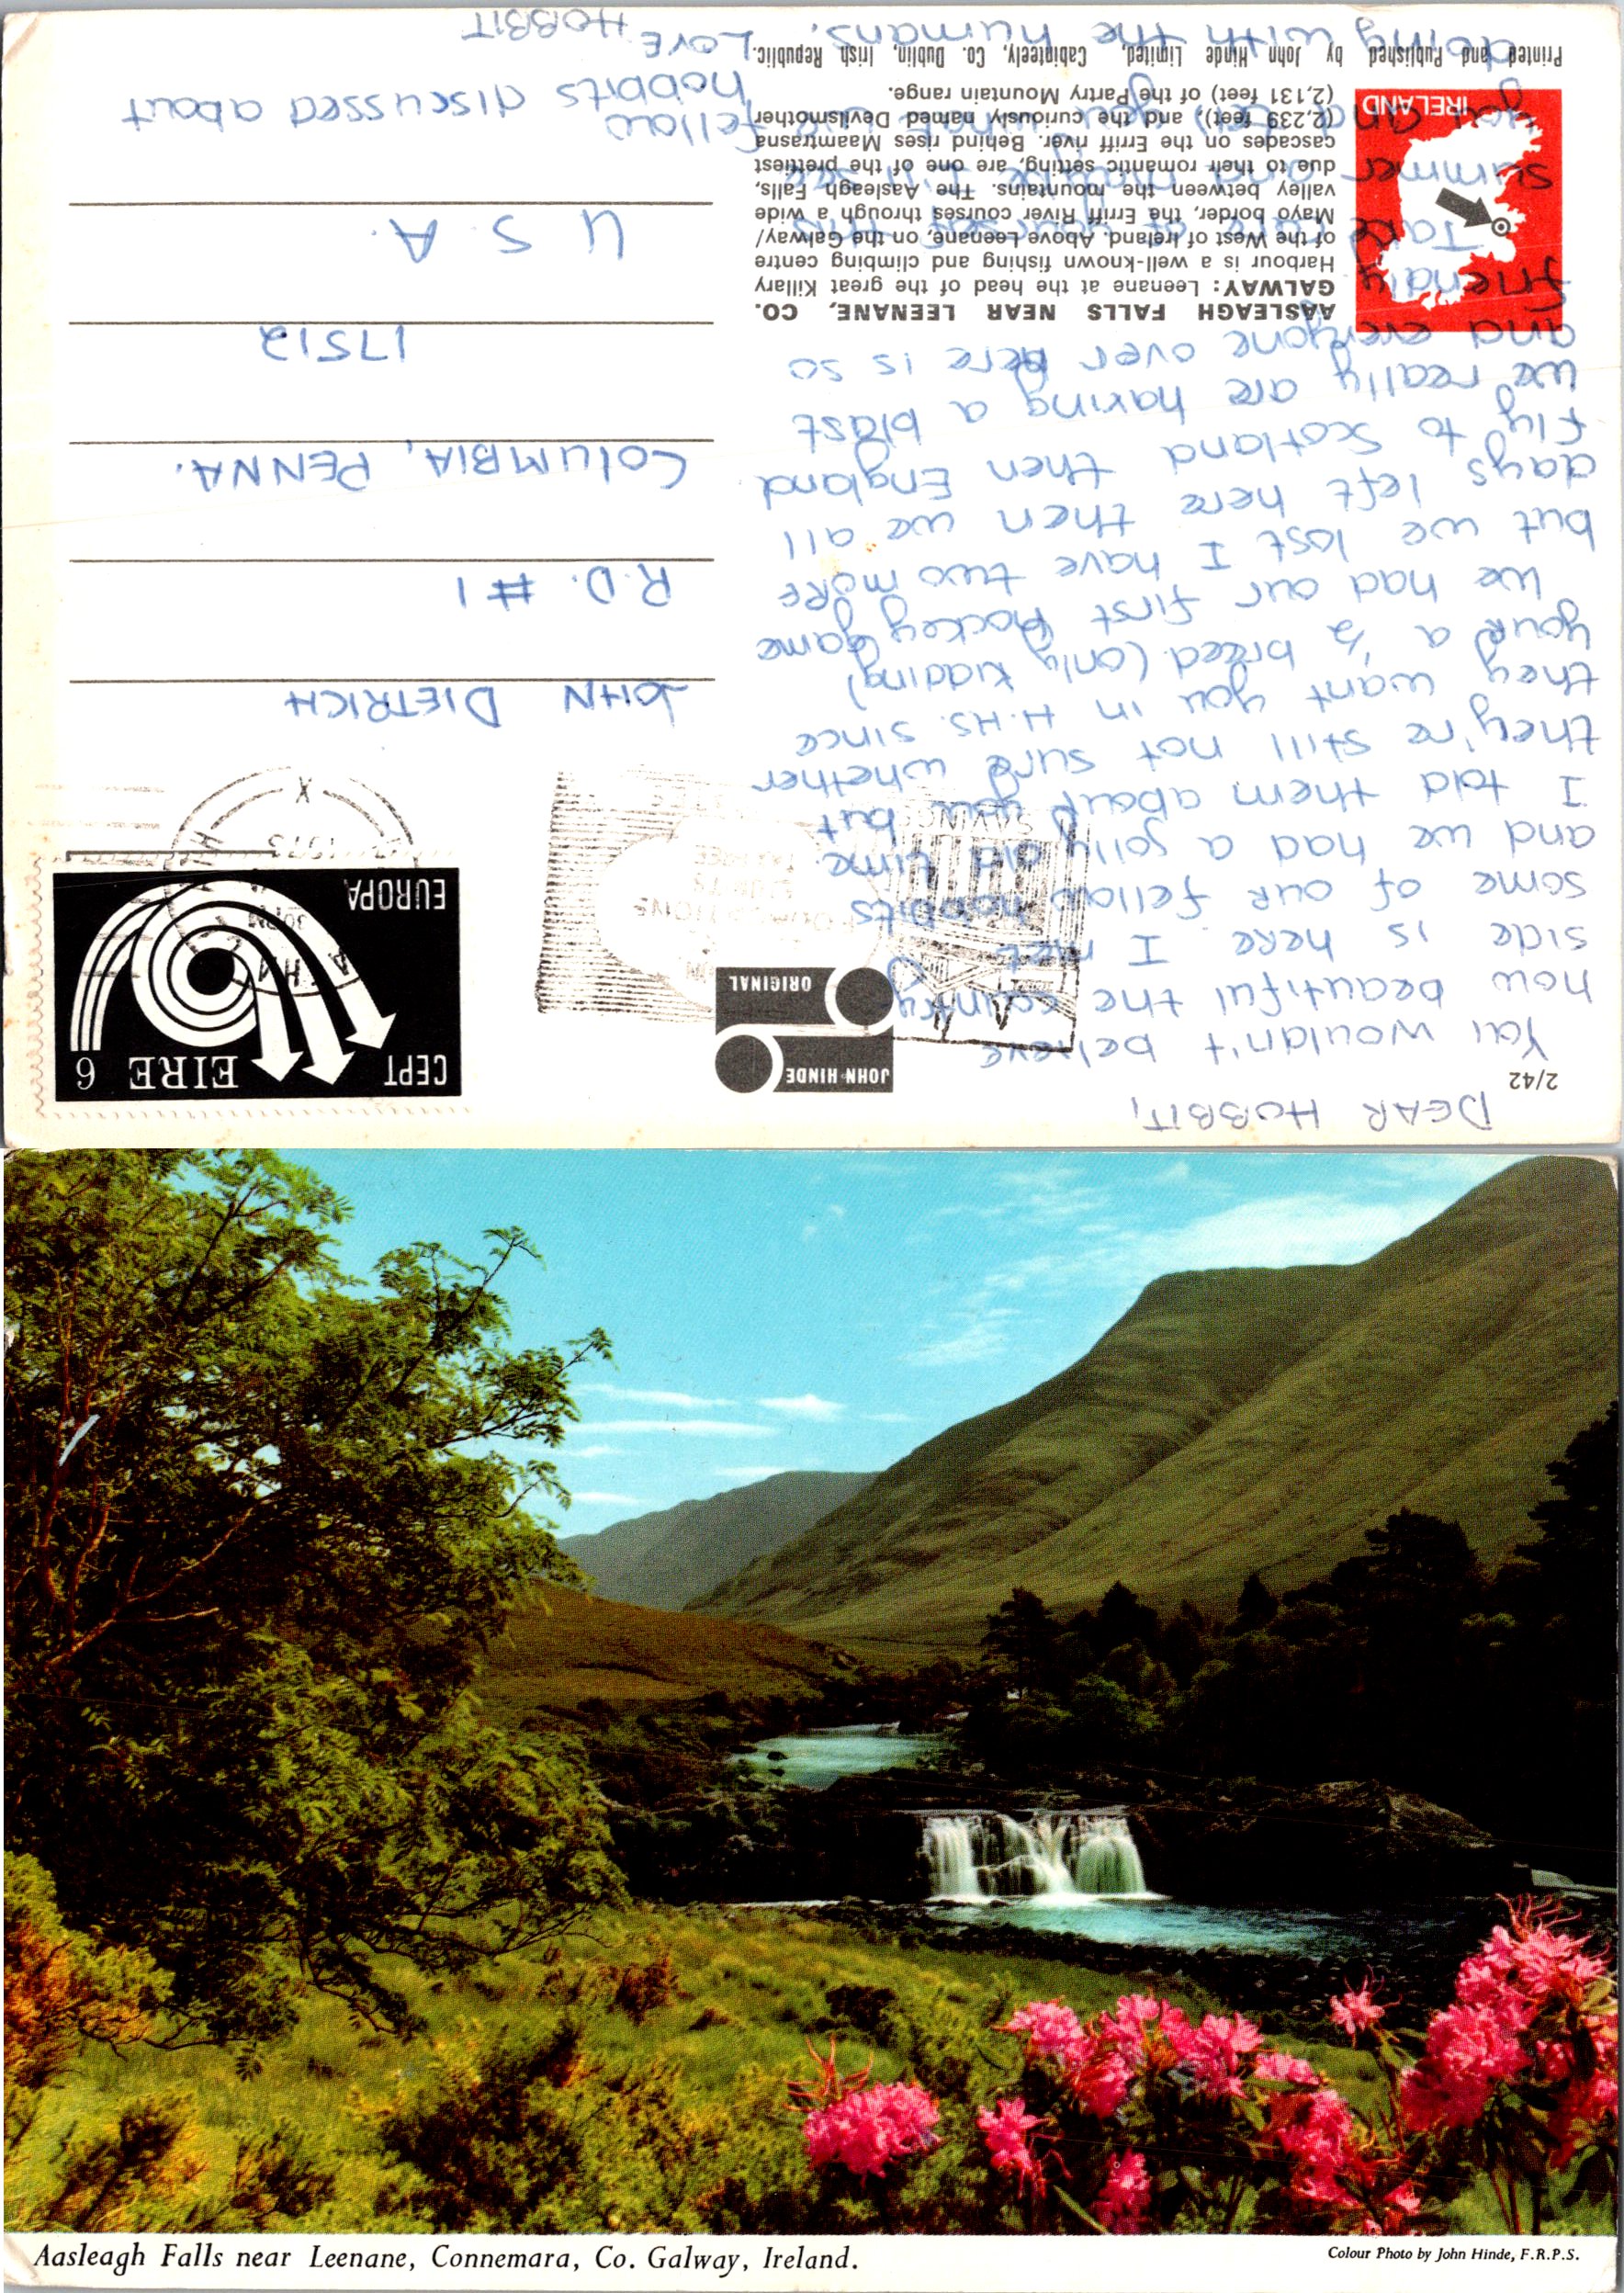 DEAR HOBBIT,
You wouldn't believe
how beautiful the country
side is here I met
some of our fellow hobbits
and we had a jolly old time.
I told them about you but
they're still not sure whether
they want you in H.HS. since
your a ½ breed (only kidding)
We had our first hockey game
but we lost I have two more
days left here then we all
fly to Scotland then England
we really are having a blast
and everyone over here is so
friendly
Take care of yourself this
summer and maybe I'll see
you and tell you what we fellow
hobbits discussed about
doing with the humans.
LOVE HOBBIT
2/42
JOHN HINDE
ORIGINAL
CEPT EIRE 6
EUROPA
1973
JOHN DIETRICH
R.D. #1
COLUMBIA, PENNA.
17512
U S A.
AASLEAGH FALLS NEAR LEENANE, CO.
GALWAY: Leenane at the head of the great Killary
Harbour is a well-known fishing and climbing centre
of the West of Ireland. Above Leenane, on the Galway/
Mayo border, the Erriff River courses through a wide
valley between the mountains. The Aasleagh Falls,
due to their romantic setting, are one of the prettiest
cascades on the Erriff river. Behind rises Maamtrasna
(2,239 feet), and the curiously named Devilsmother
(2,131 feet) of the Partry Mountain range.
IRELAND
Printed and Published by John Hinde Limited, Cabinteely, Co. Dublin, Irish Republic.
Aasleagh Falls near Leenane, Connemara, Co. Galway, Ireland.
Colour Photo by John Hinde, F.R.P.S.